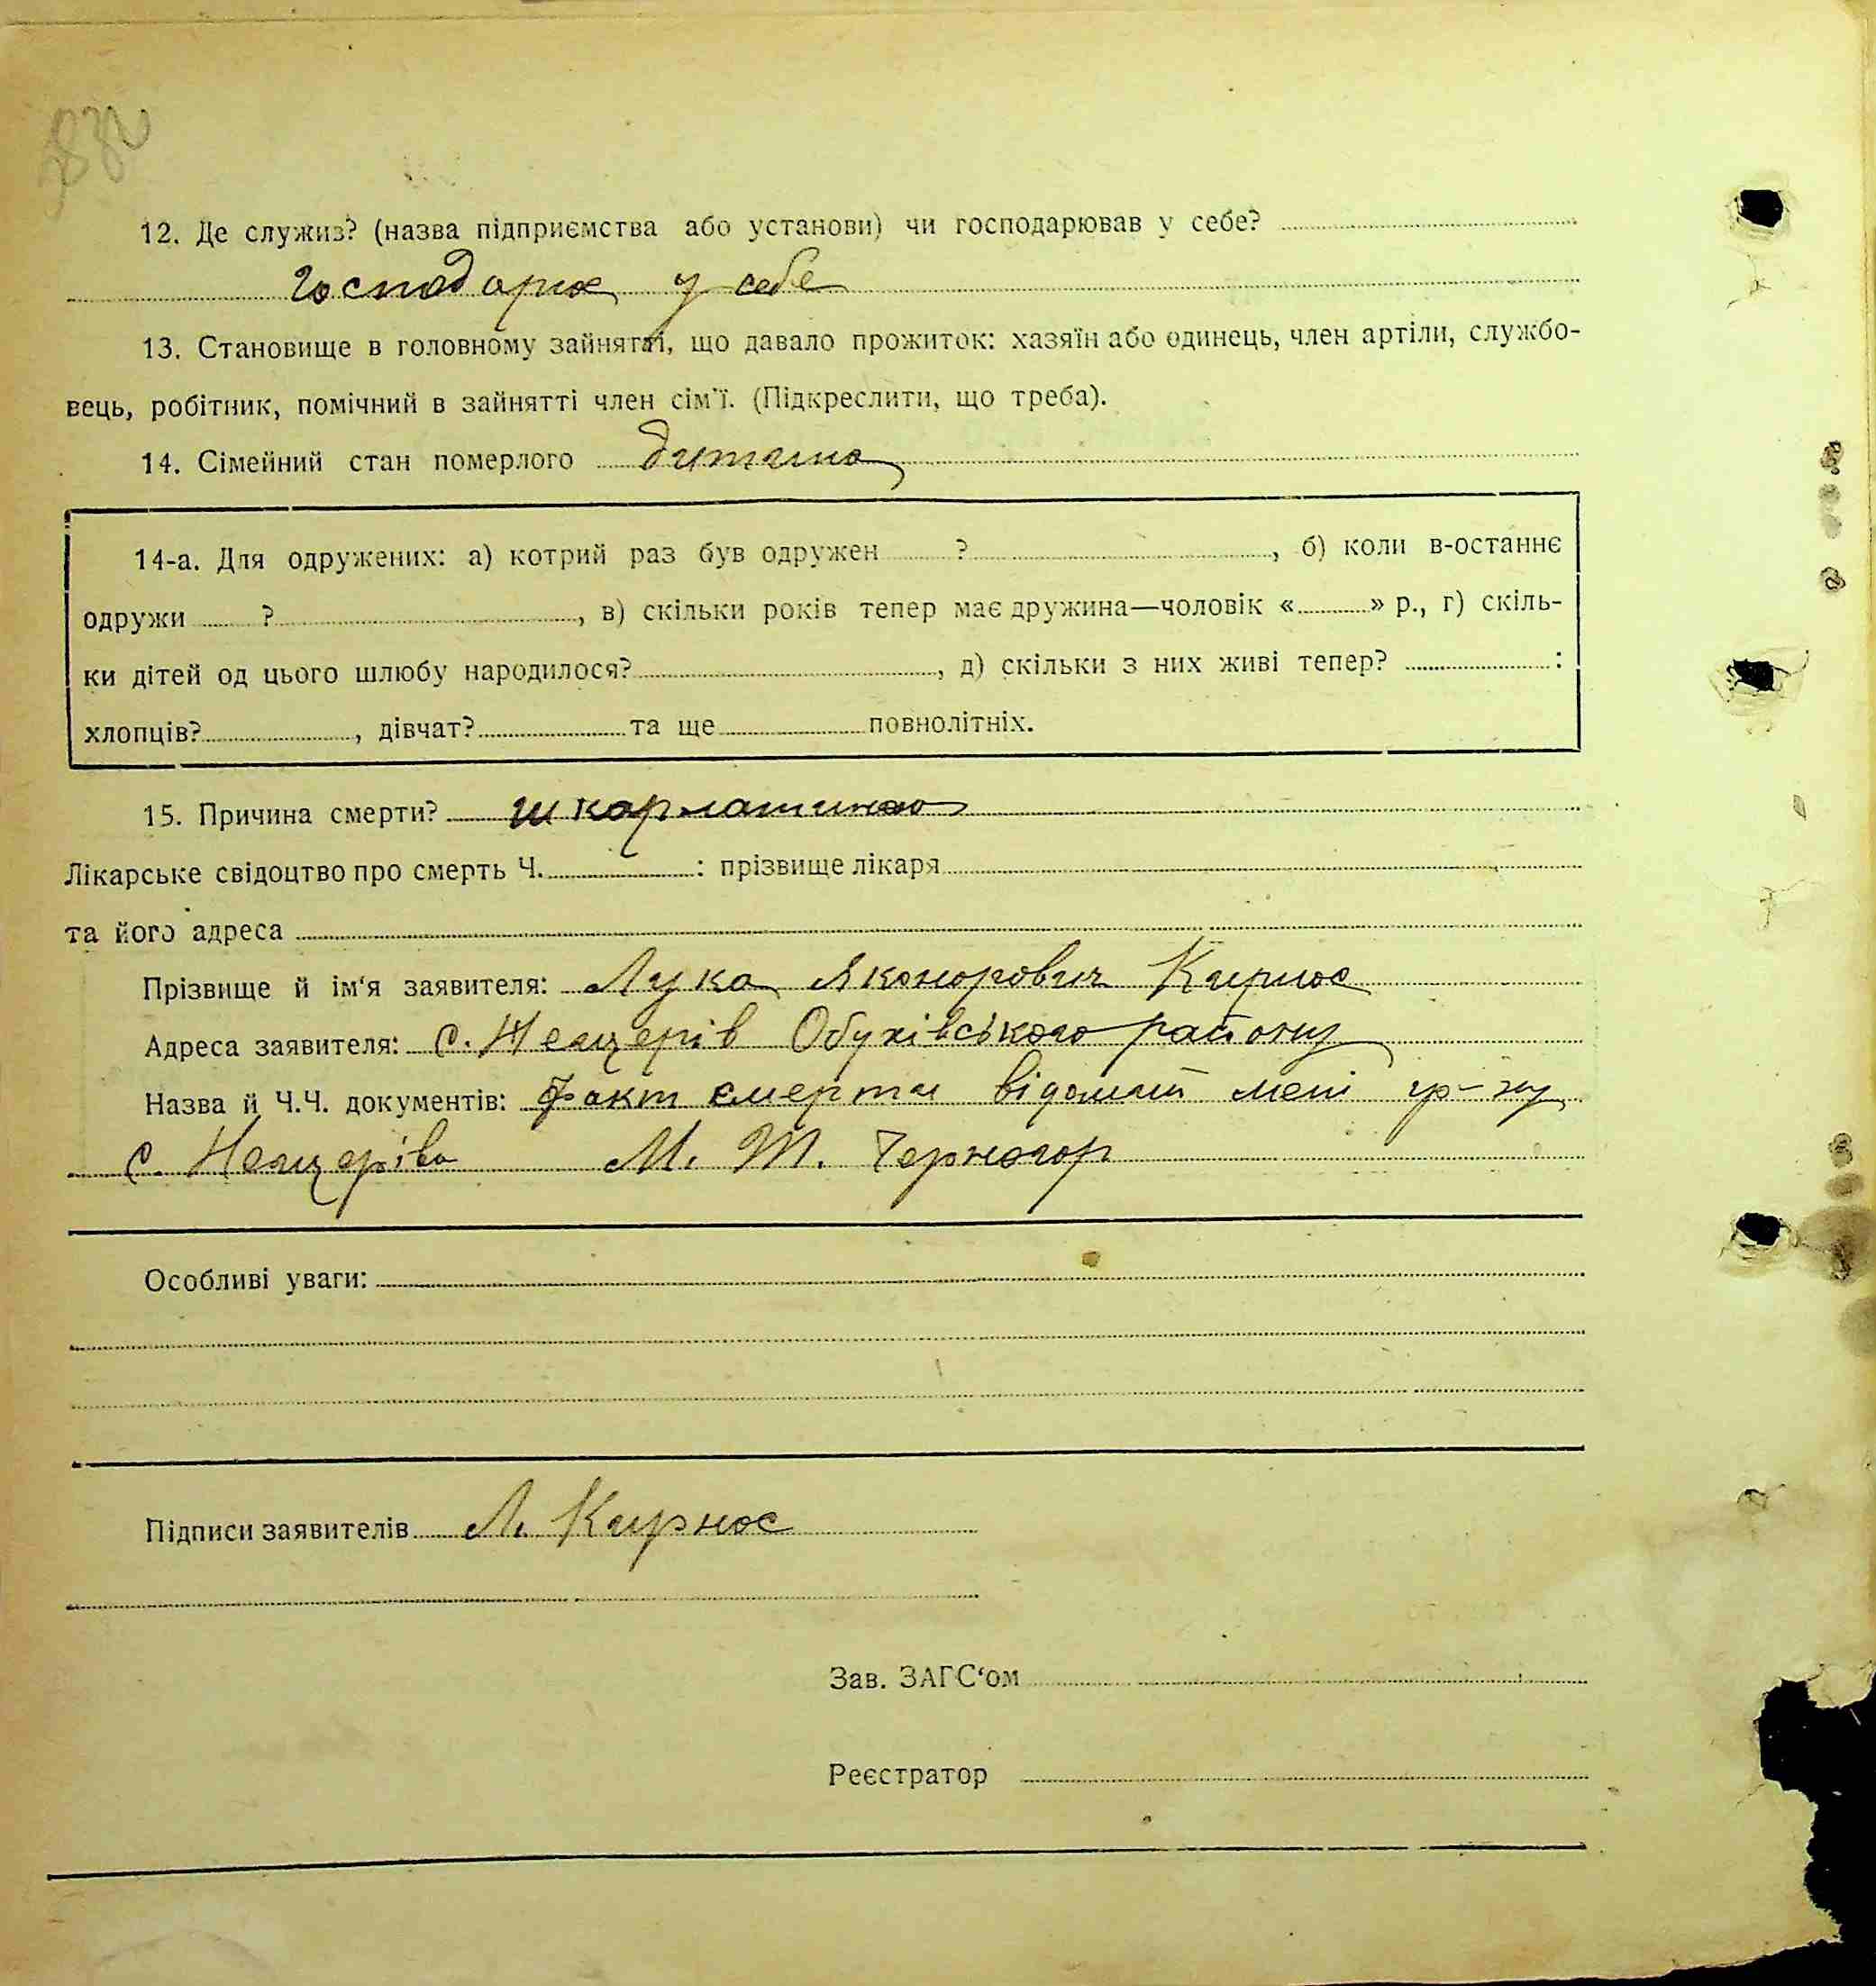 12. Де служив? (назва підприємства або установи) чи господарював у себе?
господарює у себе
13. Становище в головному зайнятті, що давало прожиток: хазяїн або одинець, член артіли, службо-
вець, робітник, помічний в зайнятті член сім'ї. (Підкреслити, що треба).
14. Сімейний стан померлого дитина
14-а. Для одружених: а) котрий раз був одружен ? , б) коли в-останнє
одружи ? , в) скільки років тепер має дружина—чоловік « » р., г) скіль-
ки дітей од цього шлюбу народилося? , д) скільки з них живі тепер? :
хлопців? , дівчат? та ще повнолітніх.
15. Причина смерти? шкарлатиною
Лікарське свідоцтво про смерть Ч. : прізвище лікаря
та його адреса
Прізвище й ім'я заявителя: Лука Кирнос
Адреса заявителя: с. Нещерів Обухівського району
Назва й Ч.Ч. документів: Факт смерти відомий мені гр-ну
с. Нещерів М. Т. Черногор
Особливі уваги:
Підписи заявителів Л. Кирнос
Зав. ЗАГС'ом
Реєстратор